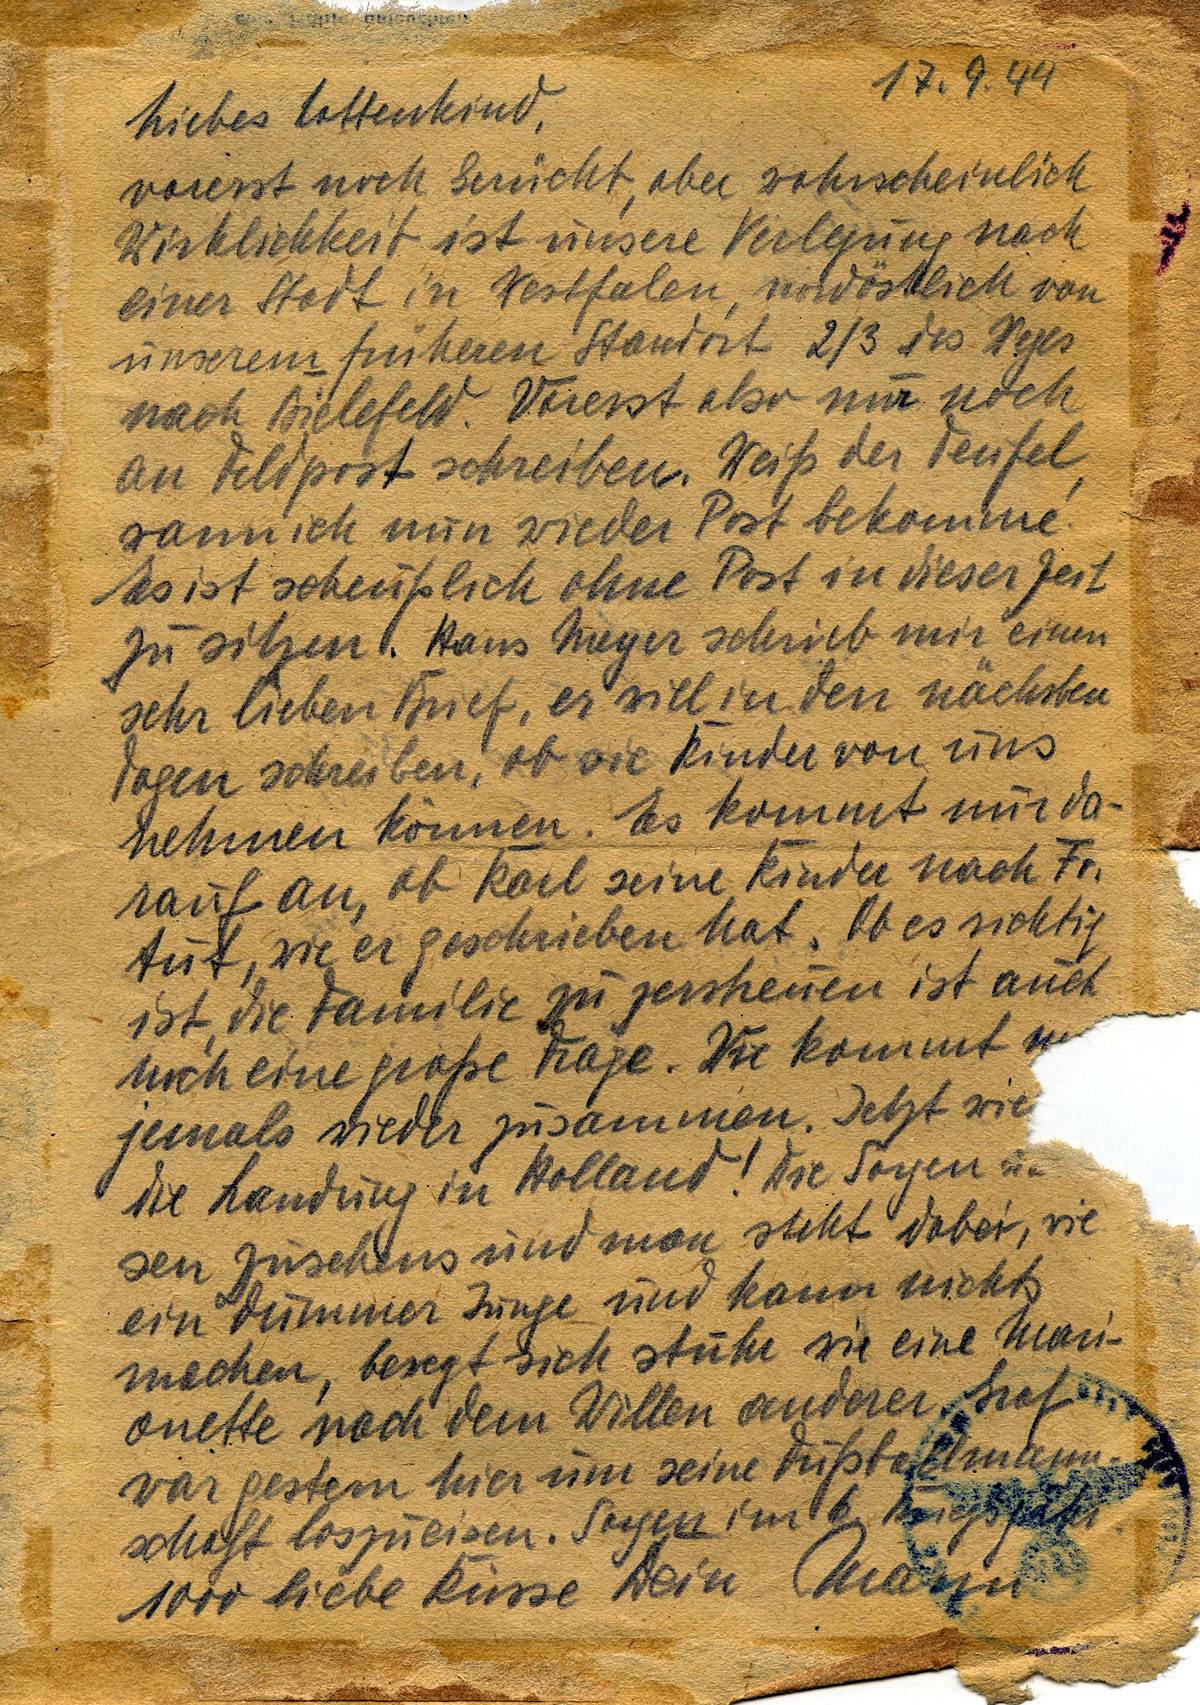 17.9.44
Liebes Lottenkind,
vorerst noch Gerücht, aber wahrscheinlich
Wirklichkeit ist unsere Verlegung nach
einer Stadt in Westfalen, nordöstlich von
unserem früheren Standort 2/3 des Weges
nach Bielefeld. Vorerst also nur noch
an Feldpost schreiben. Weiß der Teufel,
wann ich nun wieder Post bekomme.
Es ist scheußlich ohne Post in dieser Zeit
zu sitzen. Hans Meyer schrieb mir einen
sehr lieben Brief, er will in den nächsten
Tagen schreiben, ob sie Kinder von uns
nehmen können. Es kommt nur da-
rauf an, ob Karl seine Kinder nach Fr.
tut, wie er geschrieben hat. Ob es richtig
ist, die Familie zu zerstreuen ist auch
noch eine große Frage. Wie kommt
jemals wieder zusammen. Jetzt wie
die Landung in Holland! Die Sorgen
sen zusehens und man steht dabei, wie
ein dummer Junge und kann nichts
machen, bewegt sich stuhr wie eine Mari-
onette nach dem Willen anderer. Graf
war gestern hier um seine Fußballmann-
schaft loszueisen. Sorgen im 6. Kriegsjahr.
1000 liebe Küsse Dein Mann